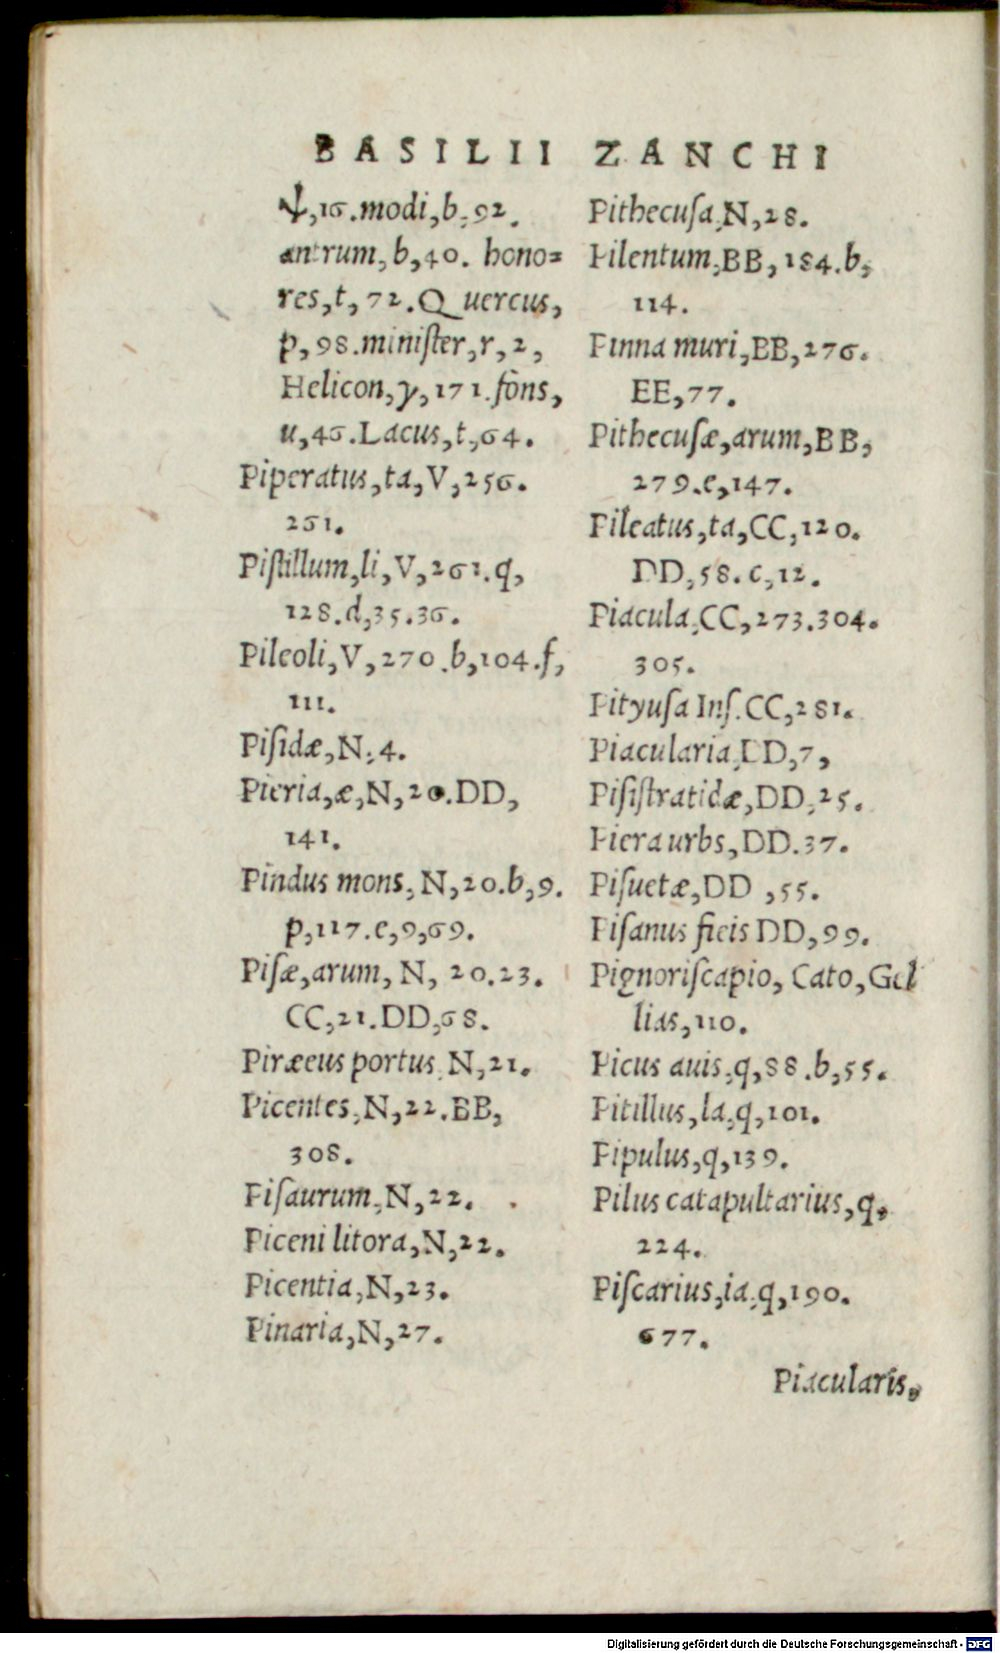 BASILII ZANCHI
ψ,16.modi,b,92.
antrum,b,40. hono=
res,t,72.Quercus,
p,98.miniſter,r,2,
Helicon,γ,171.fons,
u,46.Lacus,t,64.
Piperatus,ta,V,256.
261.
Piſtillum,li,V,261.q,
128.d,35.36.
Pileoli,V,270.b,104.f,
111.
Piſidæ,N,4.
Pieria,æ,N,20.DD,
141.
Pindus mons,N,20.b,9.
p,117.e,9,69.
Piſæ,arum,N,20.23.
CC,21.DD,68.
Piræeus portus,N,21.
Picentes,N,22.BB,
308.
Piſaurum,N,22.
Piceni litora,N,22.
Picentia,N,23.
Pinaria,N,27.
Pithecuſa,N,28.
Pilentum,BB,184.b,
114.
Pinna muri,BB,276.
EE,77.
Pithecuſæ,arum,BB,
279.e,147.
Pileatus,ta,CC,120.
DD,58.c,12.
Piacula,CC,273.304.
305.
Pityuſa Inſ.CC,281.
Piacularia,DD,7,
Piſiſtratidæ,DD,25.
Piera urbs,DD.37.
Piſuetæ,DD,55.
Piſanus ficis DD,99.
Pignoriſcapio, Cato, Gel
lias,110.
Picus auis,q,88.b,55.
Pitillus,la,q,101.
Pipulus,q,139.
Pilus catapultarius,q,
224.
Piſcarius,ia,q,190.
677.
Piacularis,
Digitalisierung gefördert durch die Deutsche Forschungsgemeinschaft - DFG